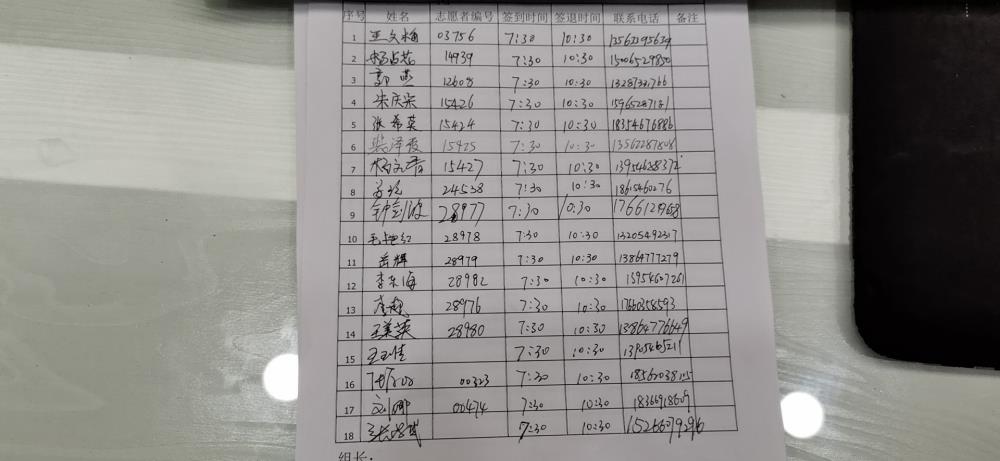 序号 姓名 志愿者编号 签到时间 签退时间 联系电话 备注
1 王文梅 03756 7:30 10:30
2 14939 7:30 10:30 15006529850
3 郭燕 12608 7:30 10:30
4 朱庆荣 15426 7:30 10:30
5 张希英 15424 7:30 10:30 18354676886
6 裴泽霞 15425 7:30 10:30 13562287808
7 杨文青 15427 7:30 10:30 13954628372
8 24538 7:30 10:30 1865460276
9 钟剑波 28977 7:30 0:30
10 28978 7:30 10:30 13205492317
11 岳辉 28979 7:30 10:30 13864777279
12 李东海 28982 7:30 10:30 13954607261
13 28976 7:30 10:30 17660358593
14 王美英 28980 7:30 10:30 13864776649
15 王玉佳 7:30 10:30
16 00323 7:30 10:30
17 刘娜 00474 7:30 10:30
18 7:30 10:30 15266079296
组长: